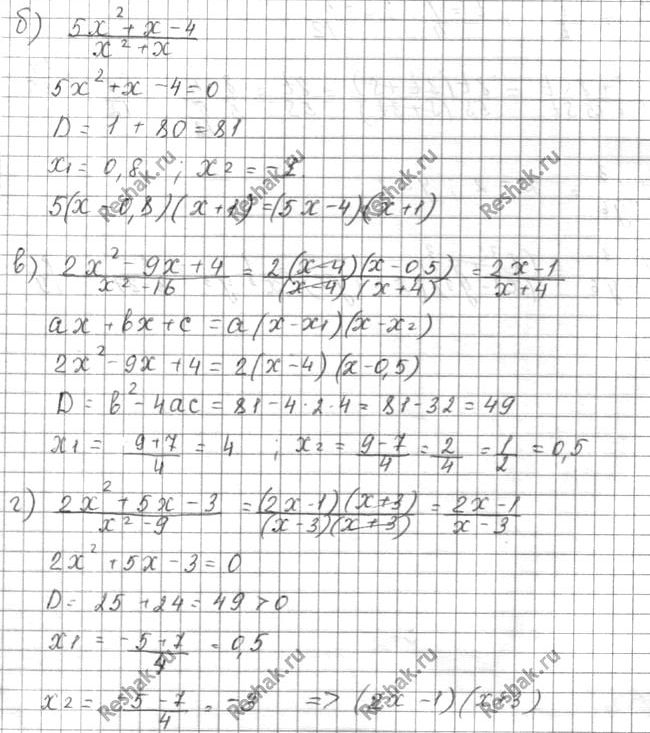 б) (5x² + x - 4)/(x² + x)
5x² + x - 4 = 0
D = 1 + 80 = 81
x₁ = 0,8 ; x₂ = -1
5(x - 0,8)(x + 1) = (5x - 4)(x + 1)
в) (2x² - 9x + 4)/(x² - 16) = (2(x - 4)(x - 0,5))/((x - 4)(x + 4)) = (2x - 1)/(x + 4)
ax + bx + c = a(x - x₁)(x - x₂)
2x² - 9x + 4 = 2(x - 4)(x - 0,5)
D = b² - 4ac = 81 - 4·2·4 = 81 - 32 = 49
x₁ = (9 + 7)/4 = 4 ; x₂ = (9 - 7)/4 = 2/4 = 1/2 = 0,5
г) (2x² + 5x - 3)/(x² - 9) = ((2x - 1)(x + 3))/((x - 3)(x + 3)) = (2x - 1)/(x - 3)
2x² + 5x - 3 = 0
D = 25 + 24 = 49 > 0
x₁ = (-5 + 7)/4 = 0,5
x₂ = (-5 - 7)/4 = -3 => (2x - 1)(x + 3)
Reshak.ru
Reshak.ru
Reshak.ru
Reshak.ru
Reshak.ru
Reshak.ru
Reshak.ru
Reshak.ru
Reshak.ru